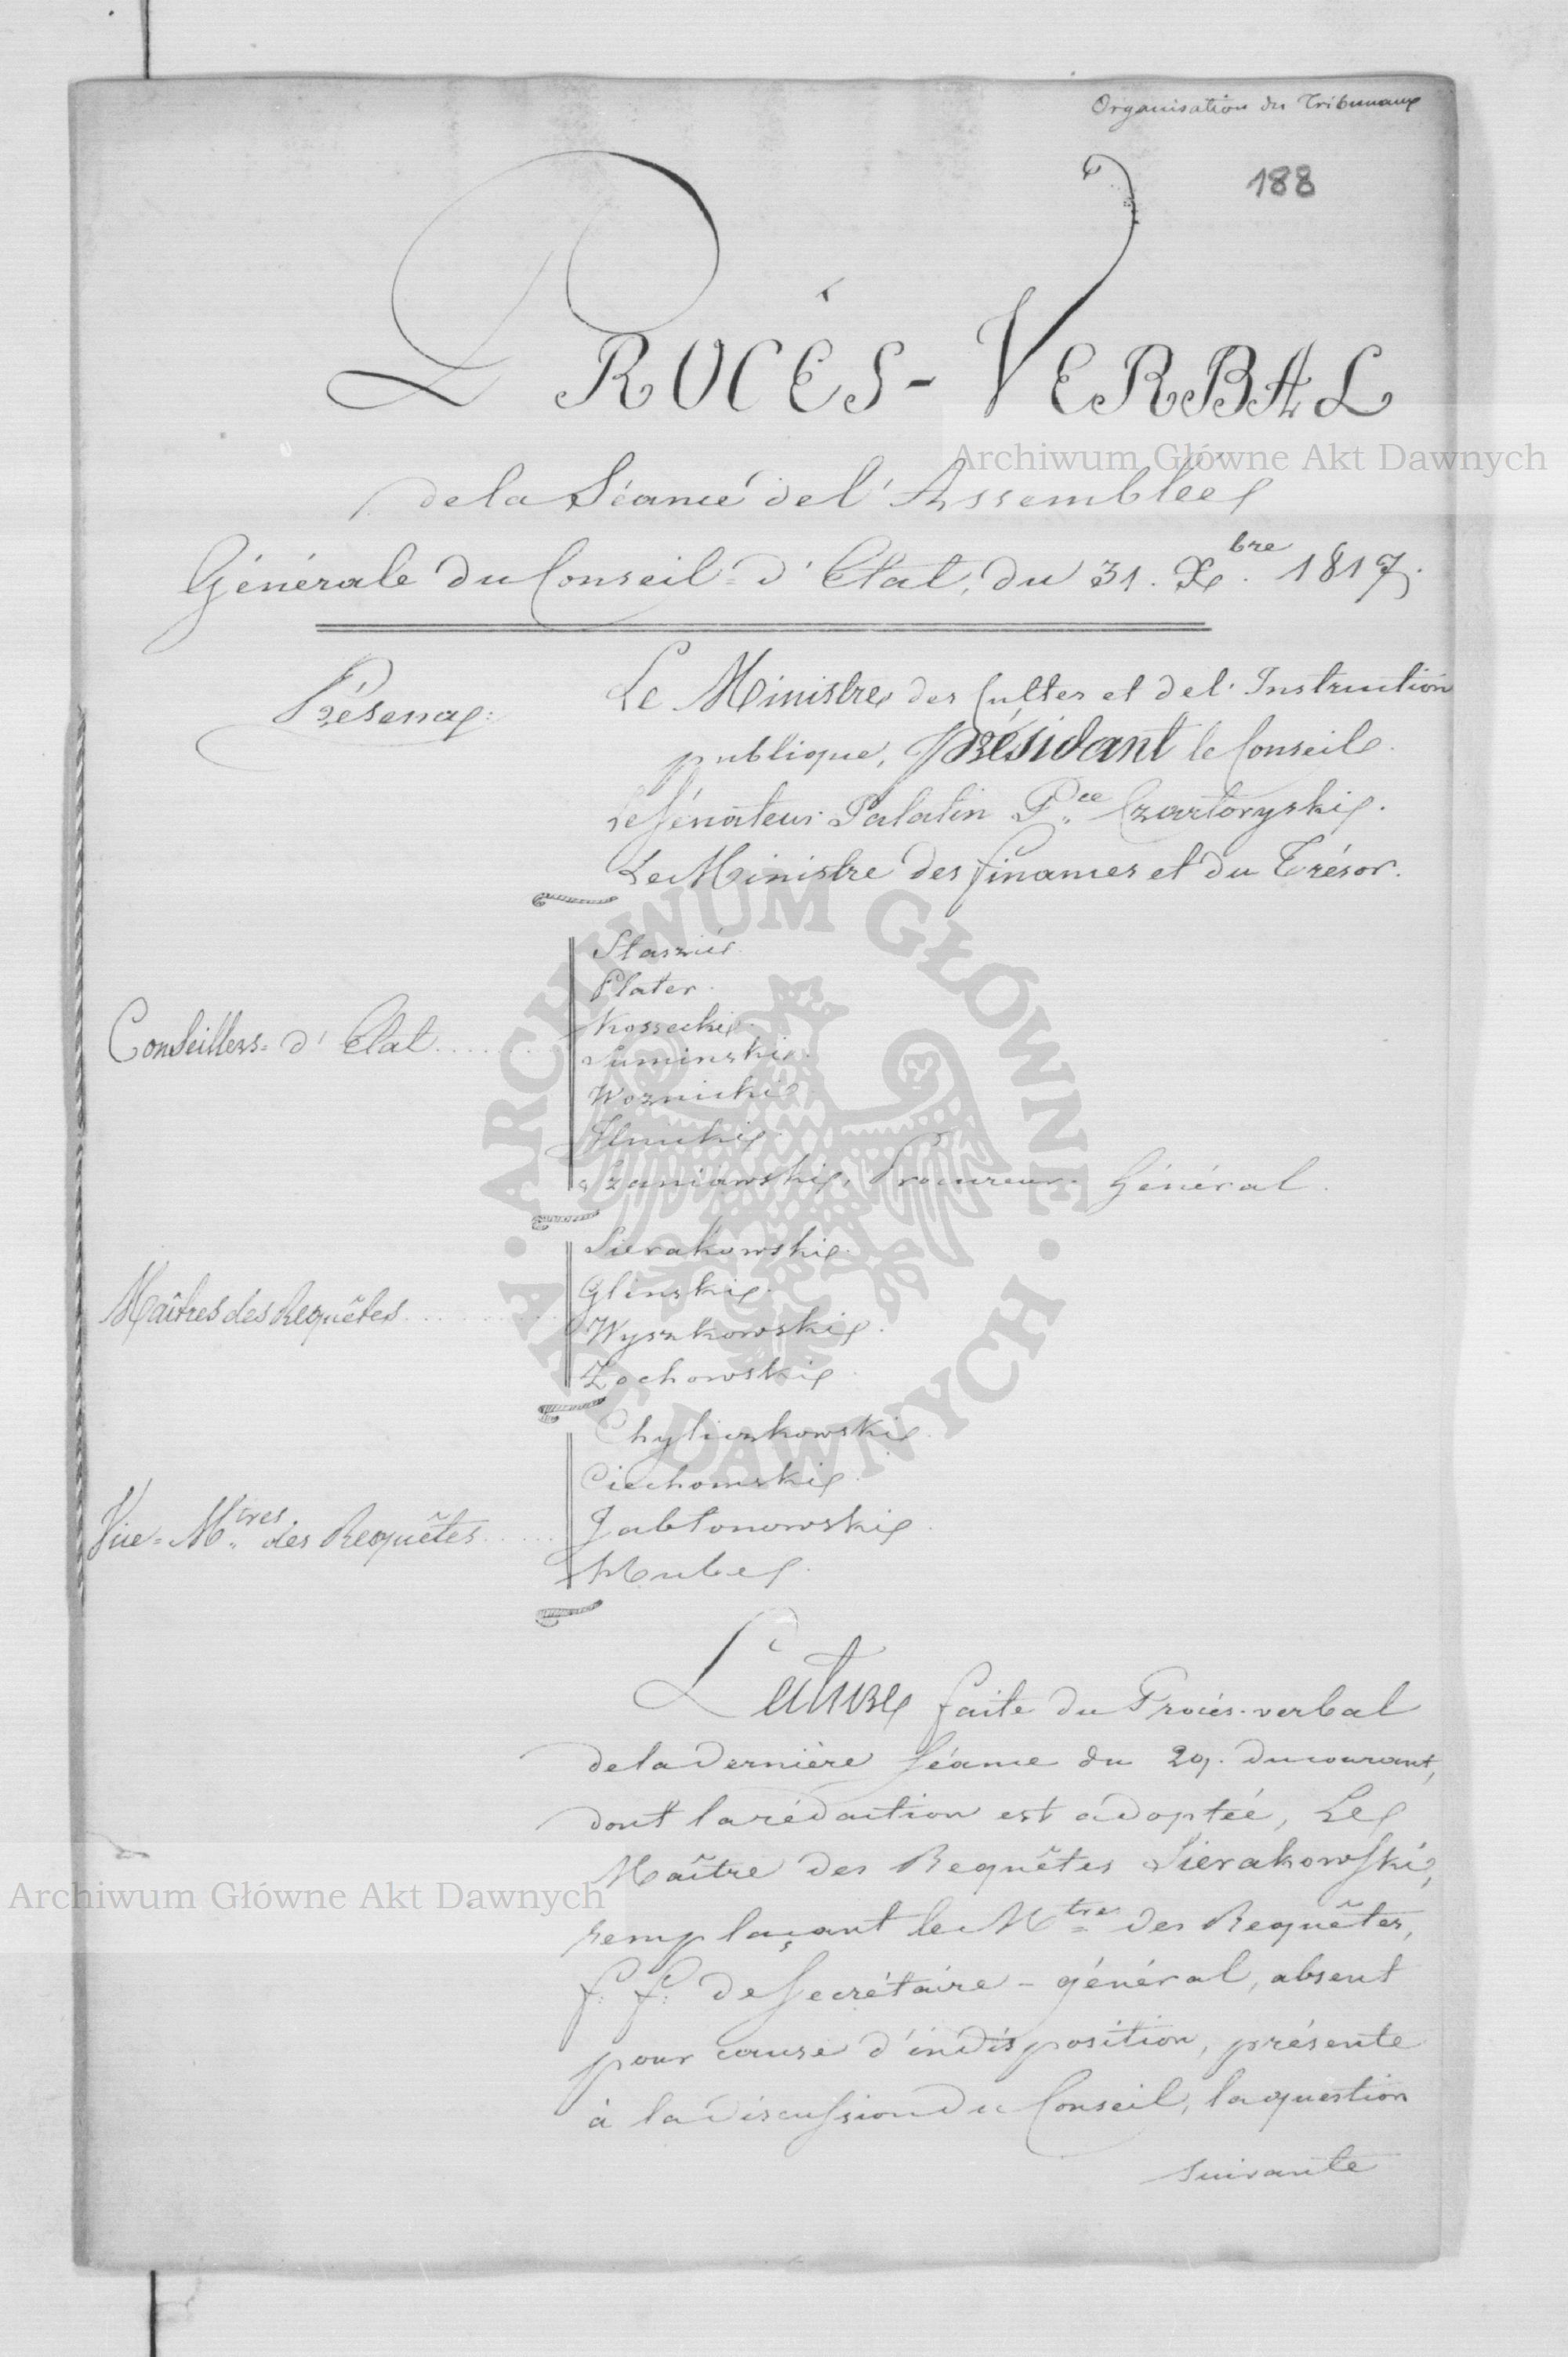 Organisation des Tribunaux
188
PROCÈS-VERBAL
Archiwum Główne Akt Dawnych
de la Séance de l'Assemblée
Générale du Conseil=d'Etat, du 31. Xbre. 1817.
Présens:
Le Ministre des Cultes et de l'Instruction
publique, Présidant le Conseil.
Le Sénateur Palatin Pce Czartoryski.
Le Ministre des finances et du Trésor.
Staszic.
Plater.
Kossecki.
Conseillers=d'Etat........
Suminski.
Woznicki.
Szaniawski, Procureur-Général.
Sierakowski.
Glinski.
Maîtres des Requêtes..........
Wyszkowski.
Zochowski.
Chyliczkowski.
Ciechomski.
Vice=Mtres des Requêtes......
Jabłonowski.
Hube.
Lecture faite du Procès-verbal
de la dernière Séance du 29. du courant,
dont la rédaction est adoptée, Le
Maître des Requêtes Sierakowski,
Archiwum Główne Akt Dawnych
remplaçant le Mtre des Requêtes,
f. f. de Secrétaire-général, absent
pour cause d'indisposition, présente
à la discussion du Conseil, la question
suivante
ARCHIWUM GŁÓWNE · AKT DAWNYCH ·